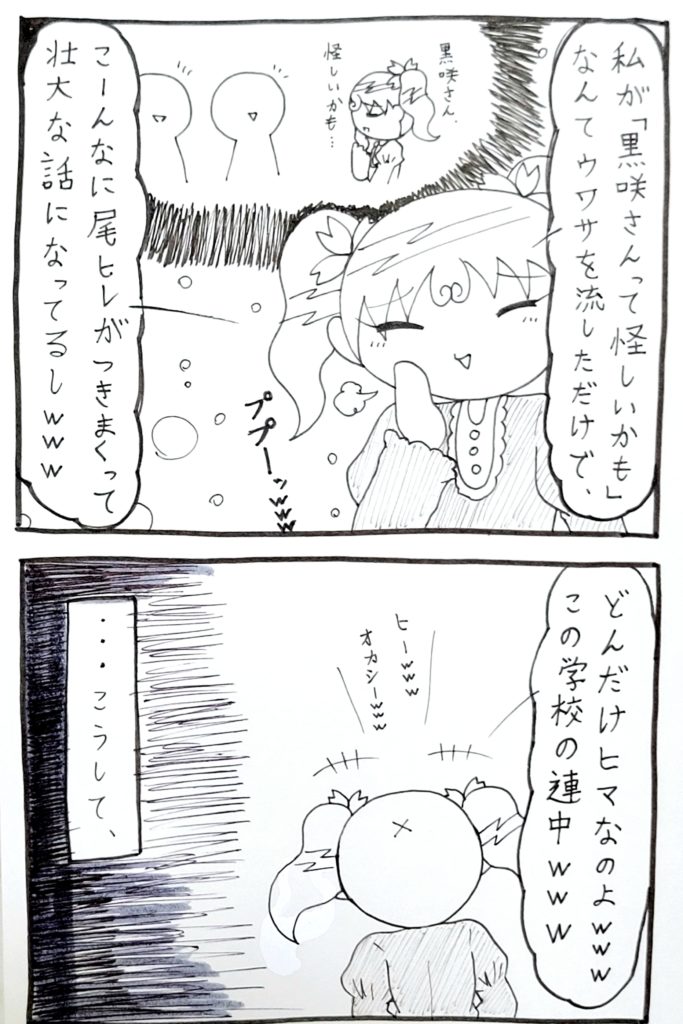 私が「黒咲さんって怪しいかも」
なんてウワサを流しただけで、
黒咲さん、
怪しいかも…
こーんなに尾ヒレがつきまくって
壮大な話になってるしwww
ププーッwww
どんだけヒマなのよwww
この学校の連中www
ヒーwww
オカシーwww
・・・こうして、